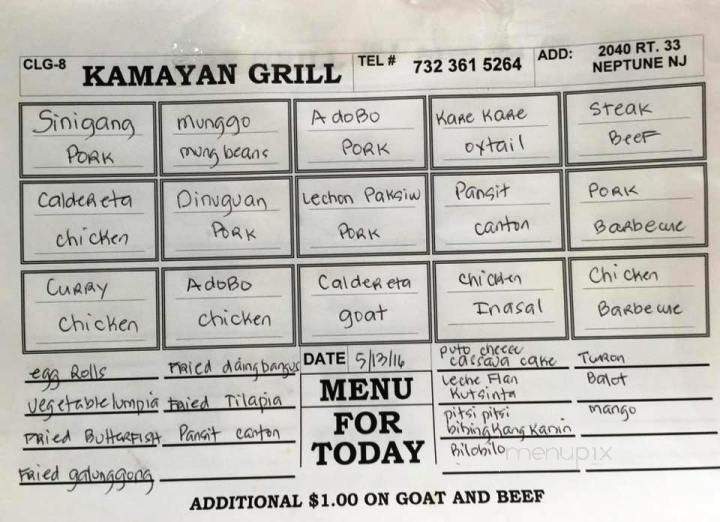 CLG-8
KAMAYAN GRILL
TEL # 732 361 5264
ADD: 2040 RT. 33
NEPTUNE NJ
Sinigang
PORK
munggo
mung beans
AdoBo
PORK
KARE KARE
oxtail
Steak
Beef
CaldeReta
chicken
Dinuguan
PORK
Lechon Paksiw
PORK
Pansit
canton
PORK
Barbecue
CURRY
Chicken
AdoBo
chicken
CaldeReta
goat
chicken
Inasal
Chicken
Barbecue
egg Rolls
vegetable lumpia
FRied ButterFish
Fried galunggong
FRied daing bangus
Fried Tilapia
Pansit canton
DATE 5/13/16
MENU
FOR
TODAY
puto cheese
cassava cake
Leche Flan
Kutsinta
pitsi pitsi
bibingkang Kanin
Bilobilo
Turon
Balot
mango
menupix
ADDITIONAL $1.00 ON GOAT AND BEEF